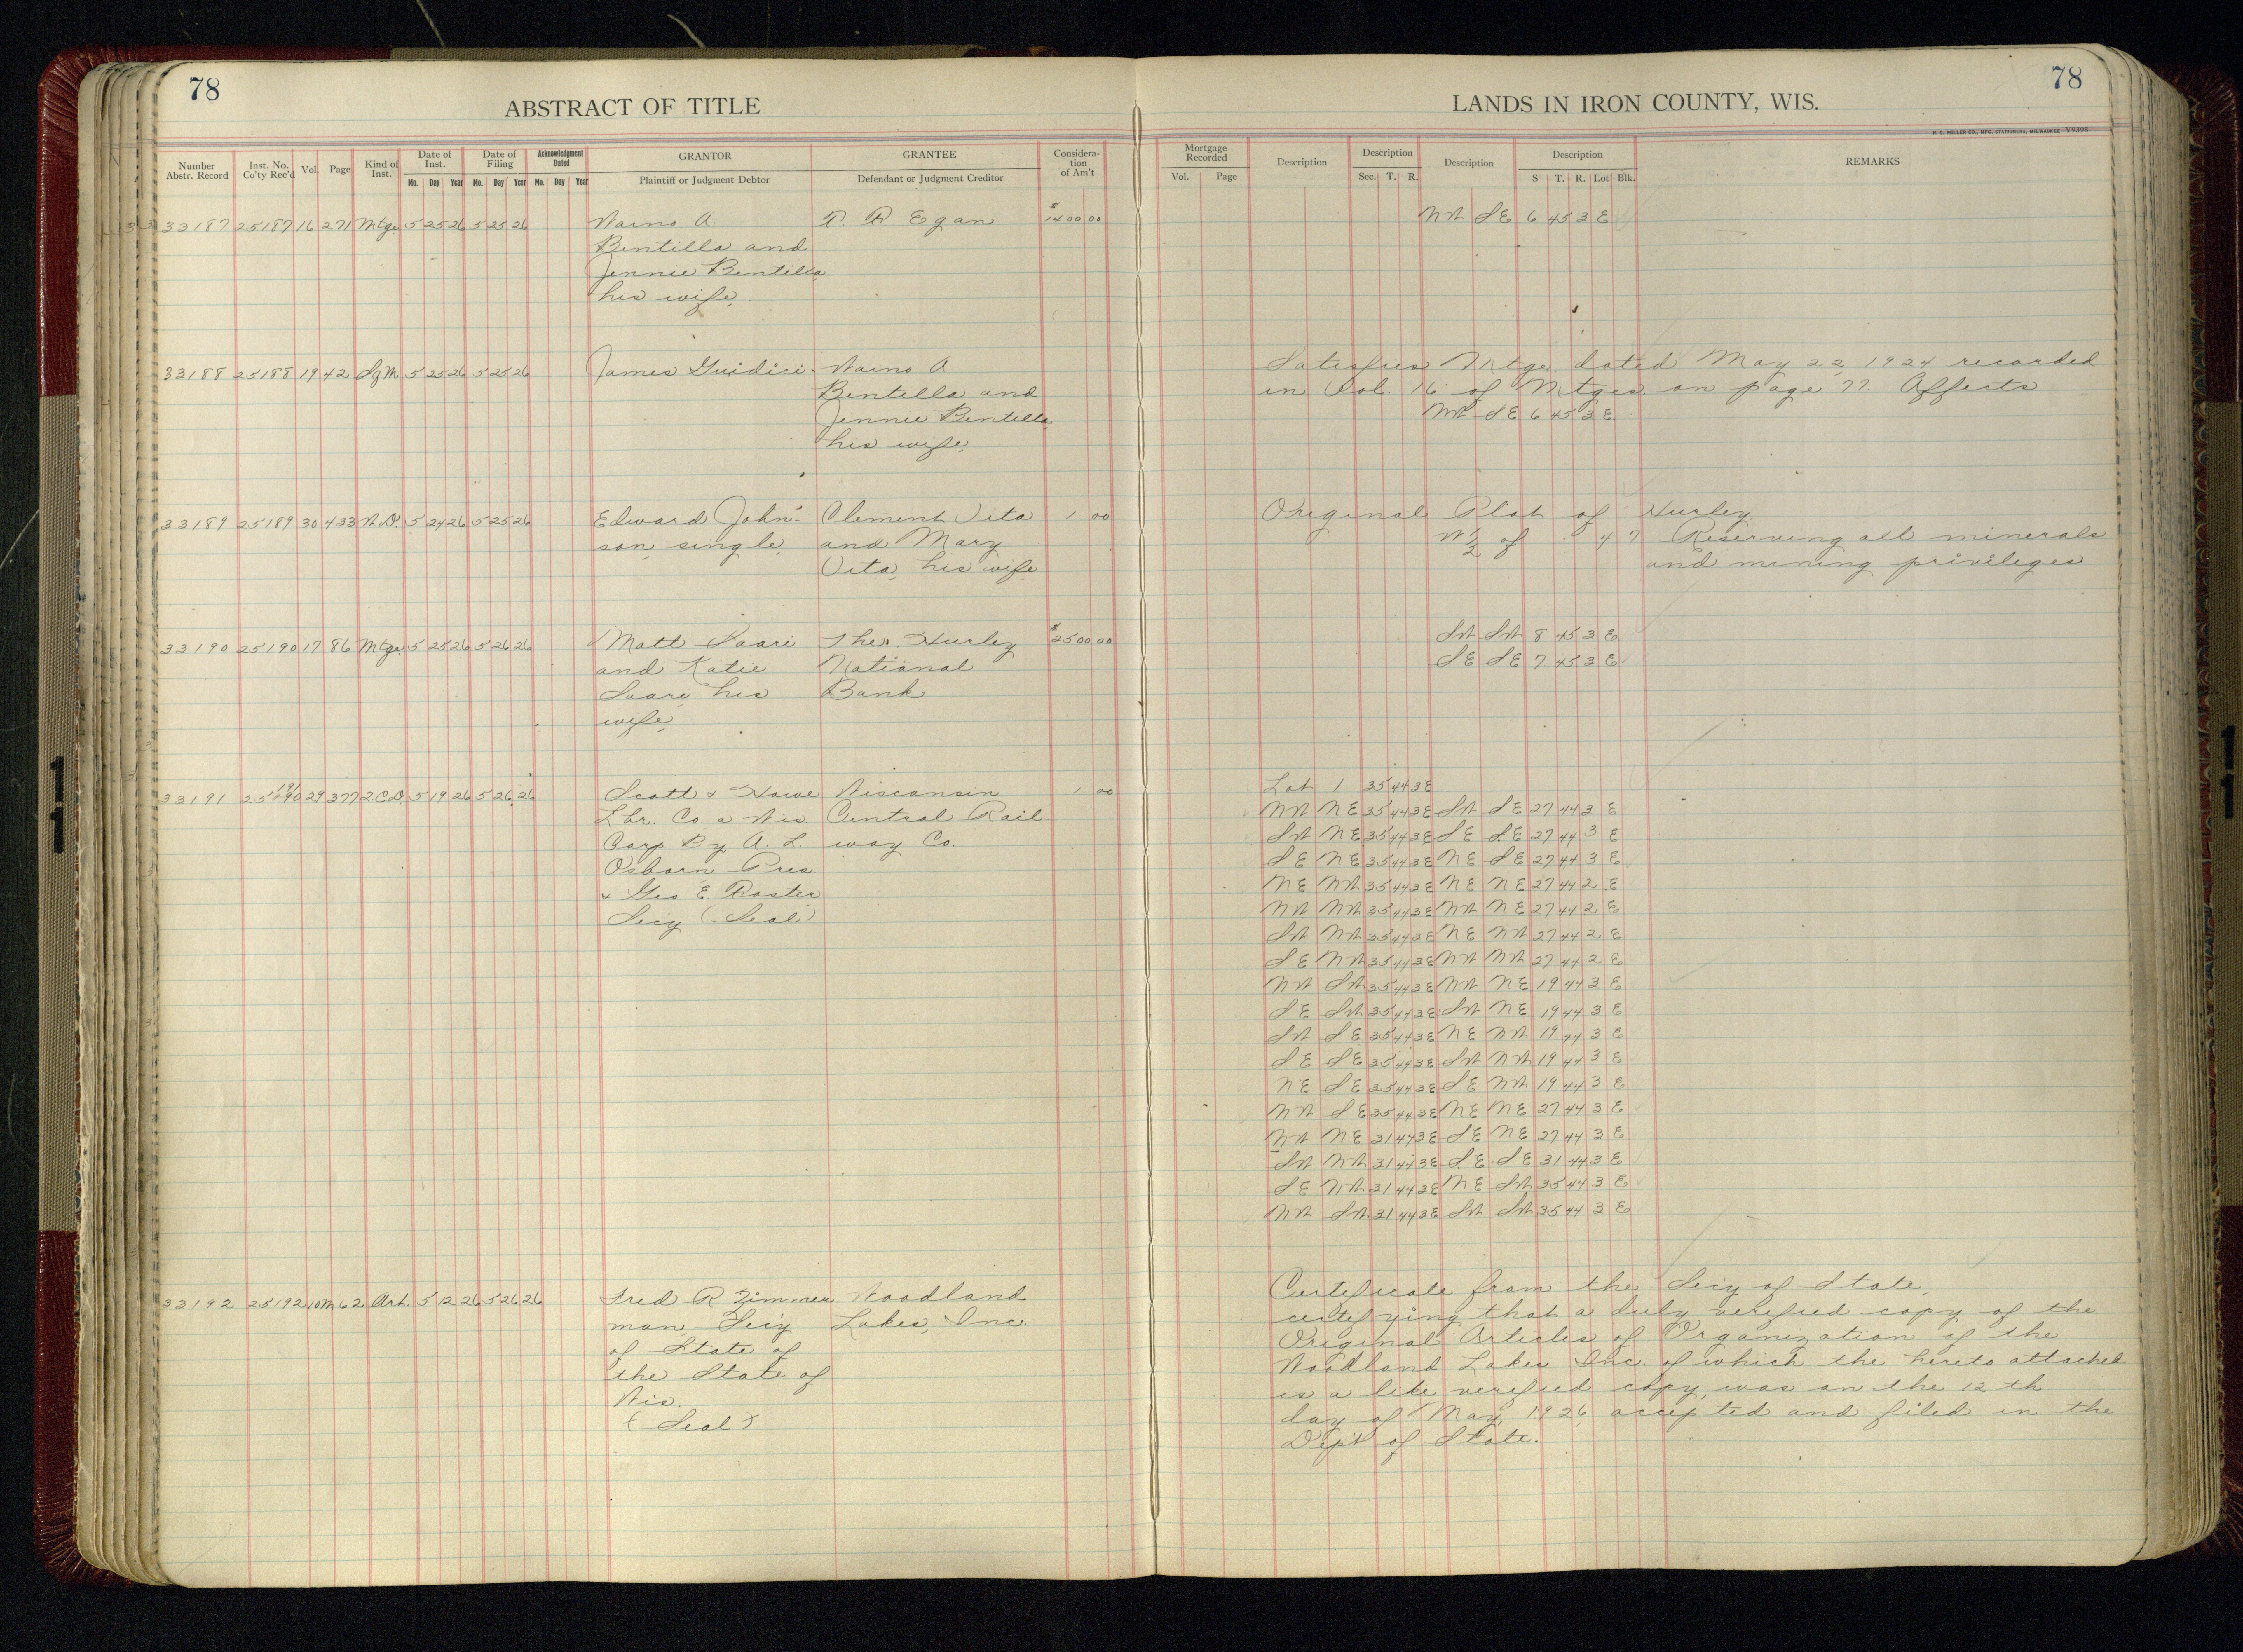 78
ABSTRACT OF TITLE
Number Abstr. Record
Inst. No. Co'ty Rec'd
Vol.
Page
Kind of Inst.
Date of Inst.
Mo. Day Year
Date of Filing
Mo. Day Year
Acknowledgment Dated
Mo. Day Year
GRANTOR
Plaintiff or Judgment Debtor
GRANTEE
Defendant or Judgment Creditor
Considera-
tion
of Am't
33187 25187 16 271 Mtge 5 25 26 5 25 26 Waino A R. R Egan $1400 00
Bentella and
Jennie Bentella
his wife,
33188 25188 19 42 Sg M 5 25 26 5 25 26 James Guidici Waino A.
Bentella and
Jennie Bentella
his wife,
33189 25189 30 433 W.D. 5 24 26 5 25 26 Edward John- Clement Vita 1 00
son, single, and Mary
Vita, his wife
33190 25190 17 86 Mtge 5 25 26 5 26 26 Matt Saari The Hurley $2500 00
and Katie National
Saari his Bank
wife,
33191 25191 29 377 2.C.D. 5 19 26 5 26 26 Scott & Howe Wisconsin 1 00
Lbr. Co a Wis Central Rail-
Corp By A. L. way Co.
Osborn Pres
& Geo E. Foster
Secy (Seal)
33192 25192 10M 62 Art. 5 12 26 5 26 26 Fred R Zimmer Woodland
man Secy Lakes, Inc.
of State of
the State of
Wis.
(Seal)
78
LANDS IN IRON COUNTY, WIS.
H. C. MILLER CO., MFG. STATIONERS, MILWAUKEE V9398
Mortgage Recorded
Vol. Page
Description
Description
Sec. T. R.
Description
Description
S T. R. Lot Blk.
REMARKS
NW SE 6 45 3 E
Satisfies Mtge dated May 22, 1924 recorded
in Vol. 16 of Mtges. on page 77. Affects
NW SE 6 45 3 E.
Original Plat of Hurley
W 1/2 of 4 7 Reserving all minerals
and mining privileges
SW SW 8 45 3 E
SE SE 7 45 3 E
Lot 1 35 44 3E
NW NE 35 44 3E SW SE 27 44 3 E
SW NE 35 44 3E SE SE 27 44 3 E
SE NE 35 44 3E NE SE 27 44 3 E
NE NW 35 44 3E NE NE 27 44 2 E
NW NW 35 44 3E NW NE 27 44 2 E
SW NW 35 44 3E NE NW 27 44 2 E
SE NW 35 44 3E NW NW 27 44 2 E
NW SW 35 44 3E NW NE 19 44 3 E
SE SW 35 44 3E SW NE 19 44 3 E
SW SE 35 44 3E NE NW 19 44 3 E
SE SE 35 44 3E SW NW 19 44 3 E
NE SE 35 44 3E SE NW 19 44 3 E
NW SE 35 44 3E NE NE 27 44 3 E
NW NE 31 44 3E SE NE 27 44 3 E
SW NW 31 44 3E SE SE 31 44 3 E
SE NW 31 44 3E NE SW 35 44 3 E
NW SW 31 44 3E SW SW 35 44 3 E
Certificate from the Secy of State,
certifying that a duly verified copy of the
Original Articles of Organization of the
Woodland Lakes Inc. of which the hereto attached
is a like verified copy, was on the 12 th
day of May, 1926 accepted and filed in the
Dep't of State.